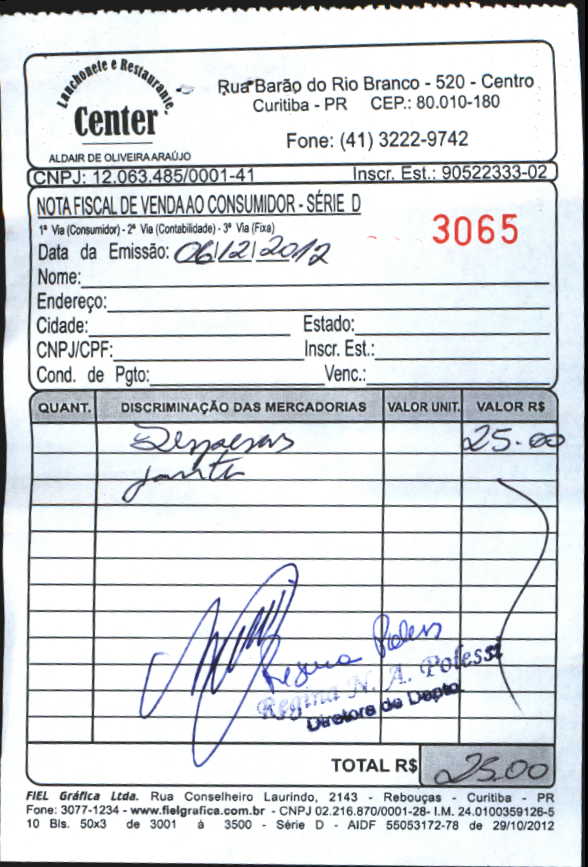 Lanchonete e Restaurante
Center
ALDAIR DE OLIVEIRA ARAÚJO
Rua Barão do Rio Branco - 520 - Centro
Curitiba - PR CEP.: 80.010-180
Fone: (41) 3222-9742
CNPJ: 12.063.485/0001-41 Inscr. Est.: 90522333-02
NOTA FISCAL DE VENDA AO CONSUMIDOR - SÉRIE D
1ª Via (Consumidor) - 2ª Via (Contabilidade) - 3ª Via (Fixa)
3065
Data da Emissão: 06/12/2012
Nome:
Endereço:
Cidade: Estado:
CNPJ/CPF: Inscr. Est.:
Cond. de Pgto: Venc.:
QUANT. DISCRIMINAÇÃO DAS MERCADORIAS VALOR UNIT. VALOR R$
Despesas 25.00
janta
Regina Poless
Regina N. A. Polessi
Diretora de Depto
TOTAL R$ 25.00
FIEL Gráfica Ltda. Rua Conselheiro Laurindo, 2143 - Rebouças - Curitiba - PR
Fone: 3077-1234 - www.fielgrafica.com.br - CNPJ 02.216.870/0001-28- I.M. 24.0100359126-5
10 Bls. 50x3 de 3001 à 3500 - Série D - AIDF 55053172-78 de 29/10/2012